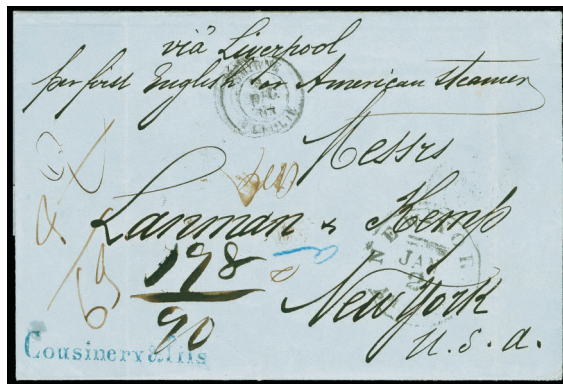 via Liverpool
per first English or American steamer
Messrs
Lanman & Kemp
New York
U.S.A.
198
90
JAN
Cousinery & Fils